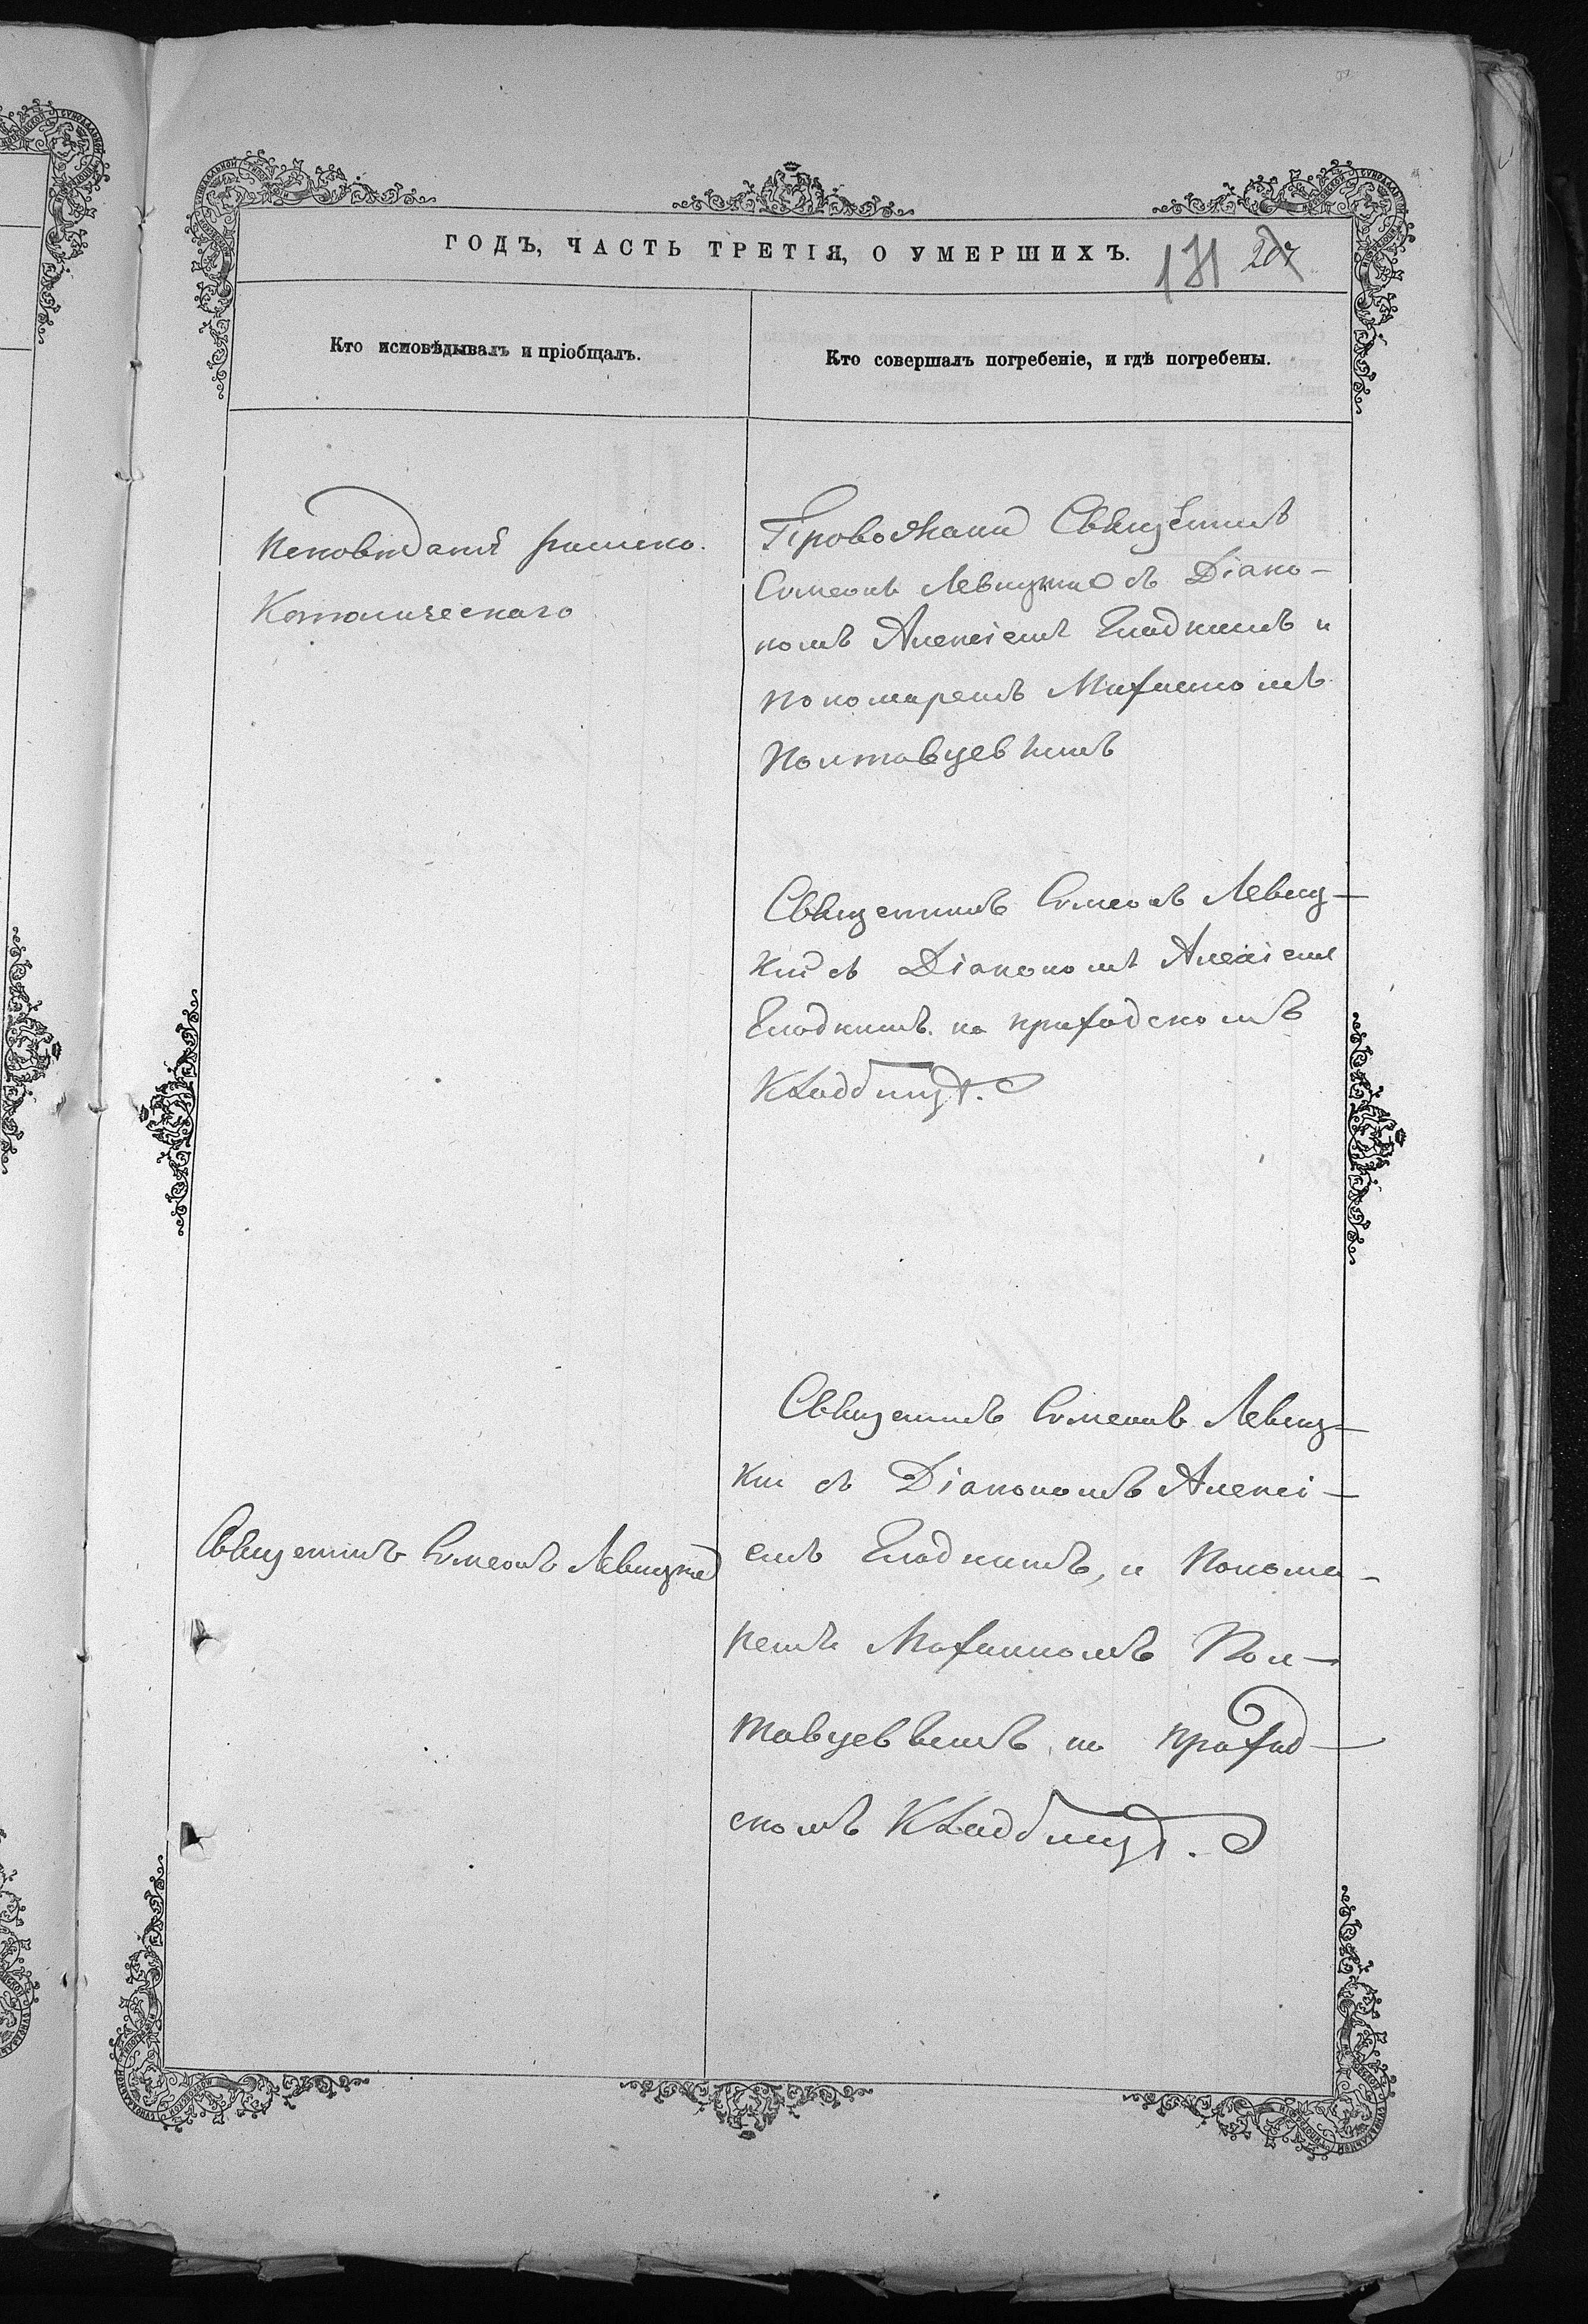 ГОДЪ, ЧАСТЬ ТРЕТІЯ, О УМЕРШИХЪ.
131 207
Кто исповѣдывалъ и пріобщалъ.
Кто совершалъ погребеніе, и гдѣ погребены.
Исповѣданія римско.
Католическаго
Провожали Священникъ
Симеонъ Левицкій съ Діако-
номъ Алексіемъ Гладкимъ и
пономаремъ Михаиломъ
Полтавцевымъ
Священникъ Симеонъ Левиц-
кій съ Діакономъ Алексіемъ
Гладкимъ на приходскомъ
Кладбищѣ.
Священникъ Симеонъ Левиц-
кій съ Діакономъ Алексі-
емъ Гладкимъ, и Понома-
ремъ Михаиломъ Пол-
тавцевымъ на приход-
скомъ Кладбищѣ.
Священникъ Симеонъ Левицкій